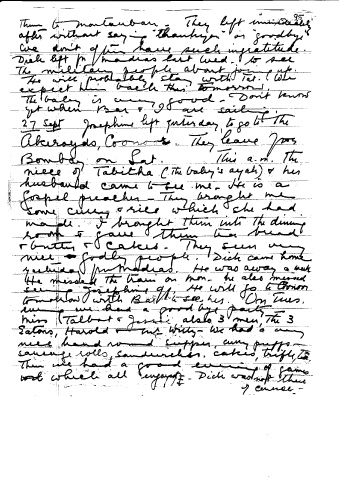 them to Montauban. They left immediately
after without saying "thankyou" or "goodbye"
We don't often have such ingratitude.
Dick left for Madras last Wed. to see
the military people about
He will probably stay with
expect him back tomorrow.
The baby is very good - Don't know
yet when Bar & I are sailing.
27 Sept Josephine left yesterday, to go to the
Akeroyds, Coonoor. They leave for
Bombay on Sat. This a.m. the
niece of Tabitha (the baby's ayah) & her
husband came to see me. He is a
Gospel preacher - They brought me
some curry & rice which she had
made. I brought them into the dining
room & gave them tea bread
& butter & cakes. They seem very
nice & godly people. Dick came home
yesterday from Madras. He was away a week
He missed the train on Mon. he also missed
seeing Josephine off. He will go to Coonoor
tomorrow with Bar to see her. On Tues.
evening we had a good bye party
Miss Talbot & Jessie, also 3 the 3
Eatons, Harold - We had a very
nice hand round supper, curry puffs -
sausage rolls, sandwiches, cakes, trifle,
Then we had a good evening of games
which all enjoyed. Dick was not there
of course -